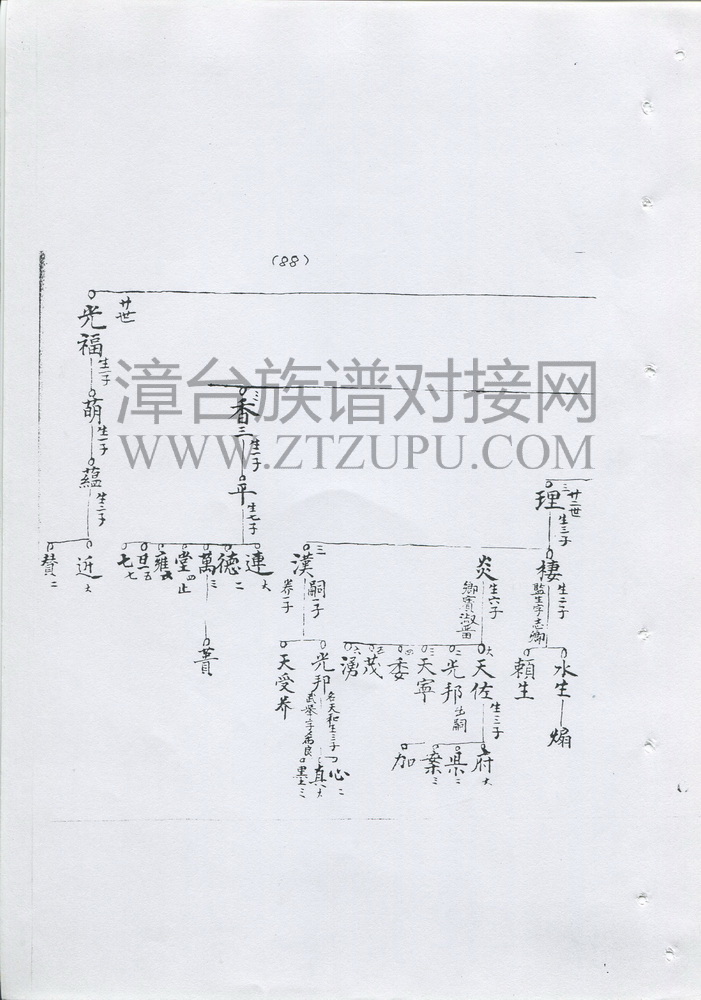 (88)
廿世
光福
生一子
萌
生一子
蘊
生二子
近
大
賛
二
三
香三
生一子
平
生七子
連
大
德
二
萬
三
堂
四
止
雍
旦
五
七
七
蕢
廿二世
三
理
生三子
棲
生二子
監生字志卿
水生
煽
賴生
炎
生六子
鄉賓淑
大
天佐
生三子
二
光邦
出嗣
三
天寧
四
委
五
茂
六
湧
府
大
県
二
案
三
加
三
漢
嗣一子
养一子
光邦
名天和生三子
武举字
天受养
心
二
真
大
三
漳台族谱对接网
WWW.ZTZUPU.COM